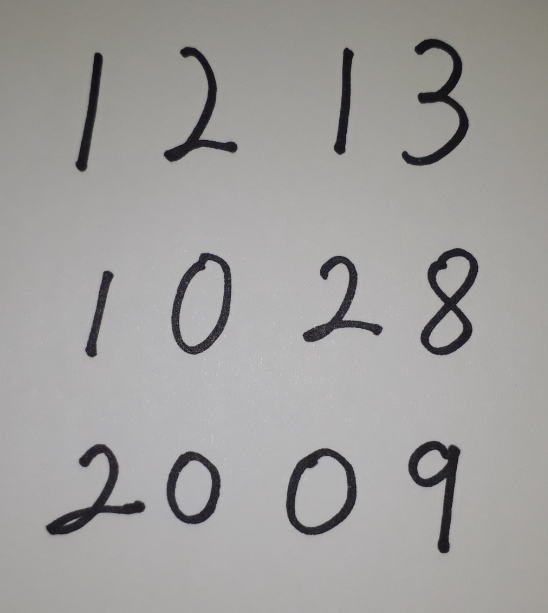 12 13
10 28
20 09